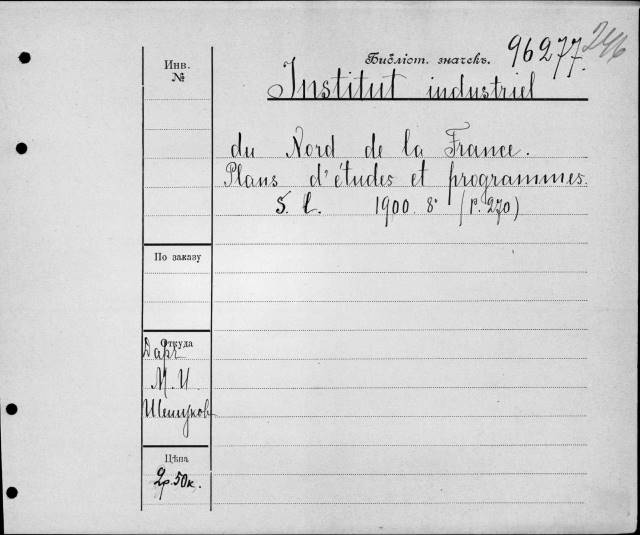 Инв. №
Библіот. значекъ. 96277.
246
Institut industriel
du Nord de la France.
Plans d'études et programmes.
S. l. 1900. 8° (p. 270)
По заказу
Откуда
Даръ
М. И.
Цѣна
2р. 50к.